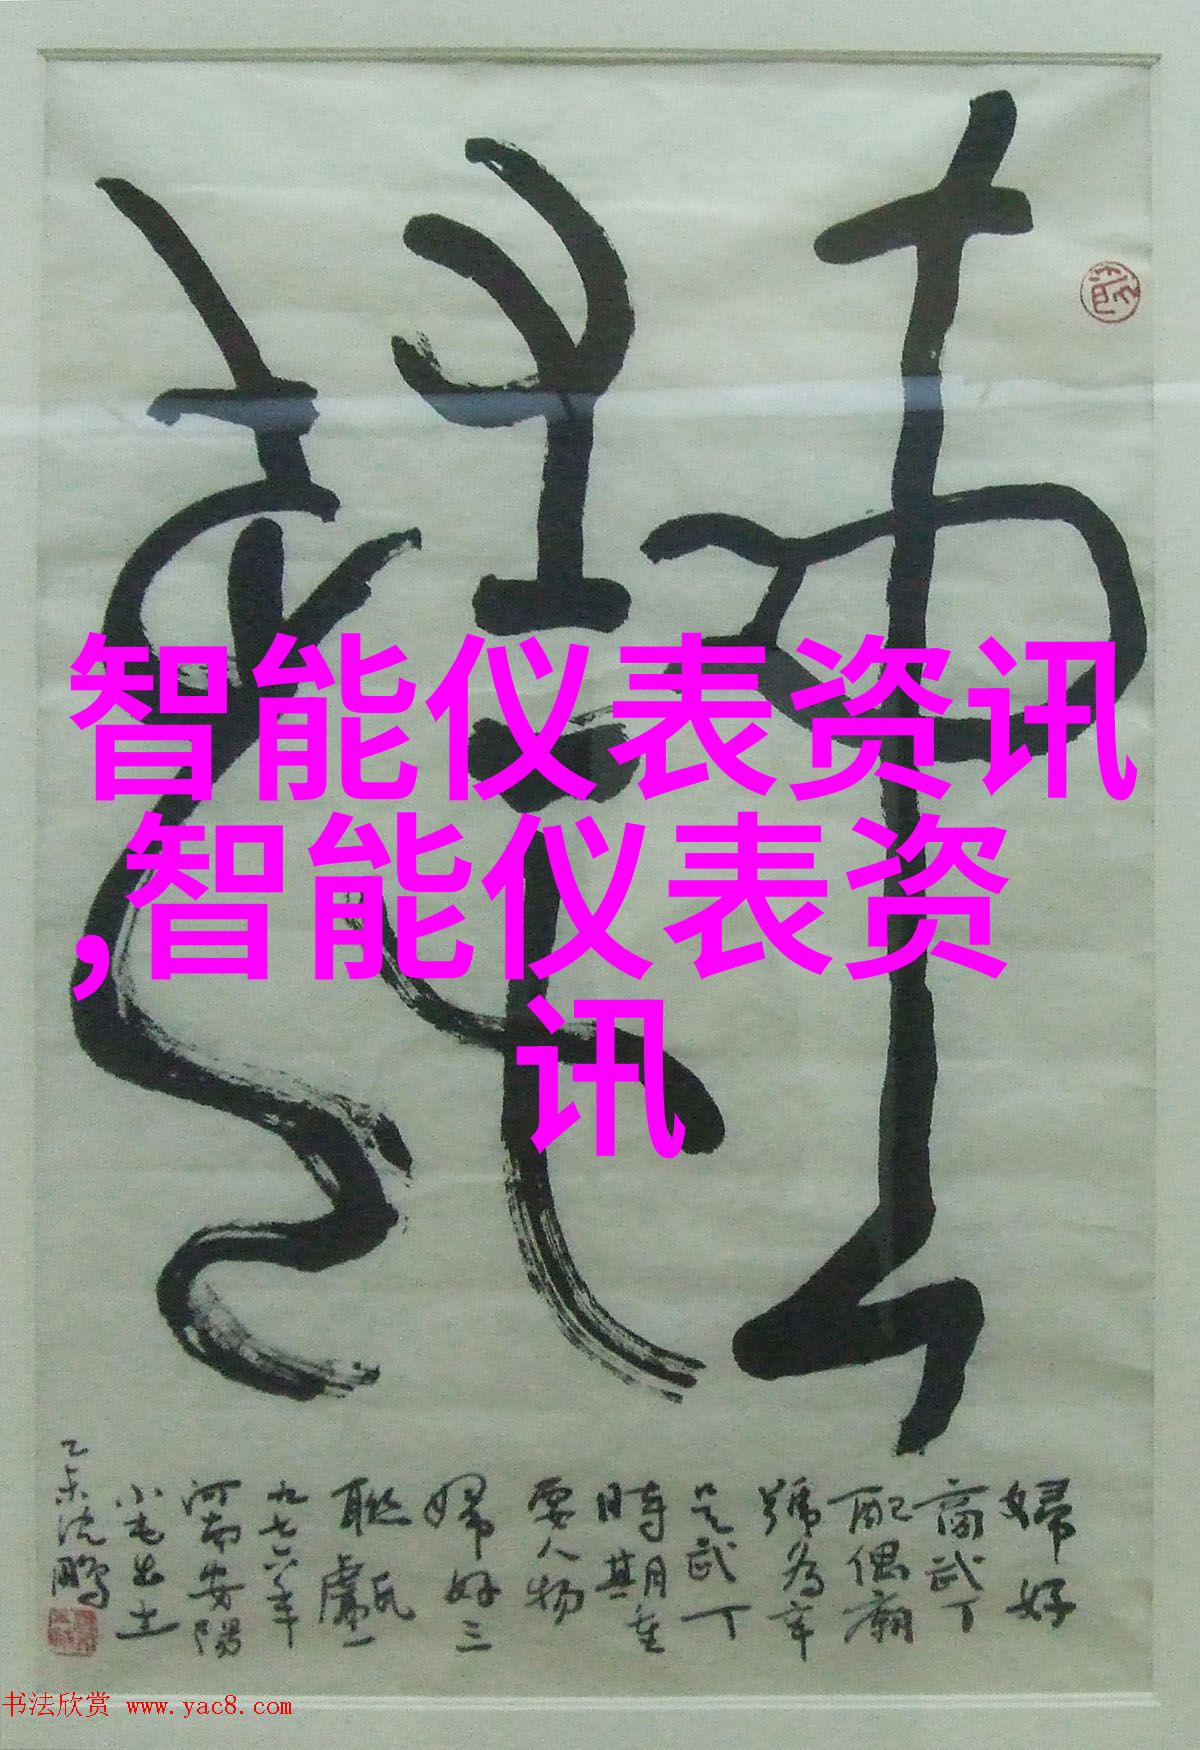 智能仪表资讯
,智能仪表资
讯
婦好
商武丁
配偶廟
號为辛
是武丁
時期重
要人物
婦好三
聯甗一
九七六年
河南安陽
小屯出土
乙未沈鵬
书法欣赏 www.yac8.com